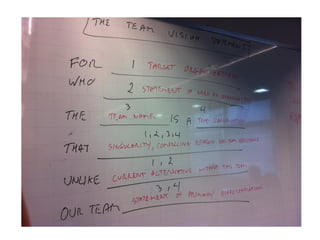 THE TEAM VISION STATEMENT
FOR 1 TARGET
WHO 2 STATEMENT OF NEED OR
3 4
THE TEAM NAME IS A TEAM
1,2,3,4
THAT SINGULARITY, COMPELLING REASON
1, 2
UNLIKE CURRENT ALTERNATIVE WITHOUT THE TEAM
3, 4
OUR TEAM STATEMENT OF PRIMARY DIFFERENTIATION